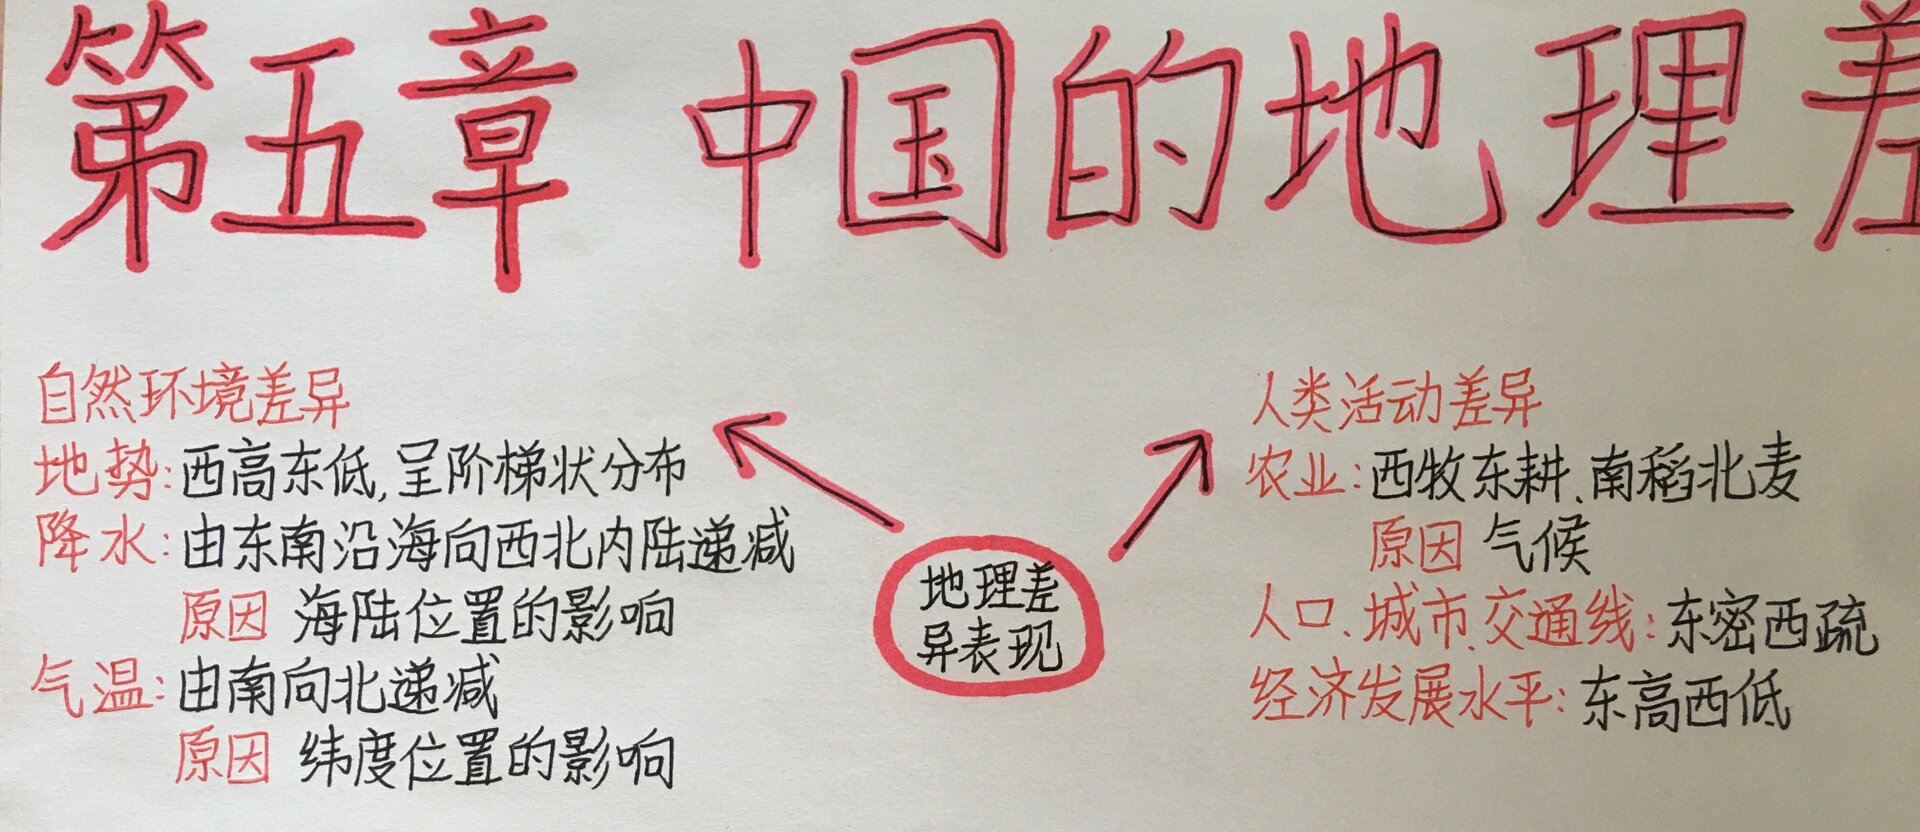 第五章 中国的地理差
自然环境差异
地势:西高东低,呈阶梯状分布
降水:由东南沿海向西北内陆递减
原因 海陆位置的影响
气温:由南向北递减
原因 纬度位置的影响
地理差
异表现
人类活动差异
农业:西牧东耕、南稻北麦
原因 气候
人口、城市、交通线:东密西疏
经济发展水平:东高西低